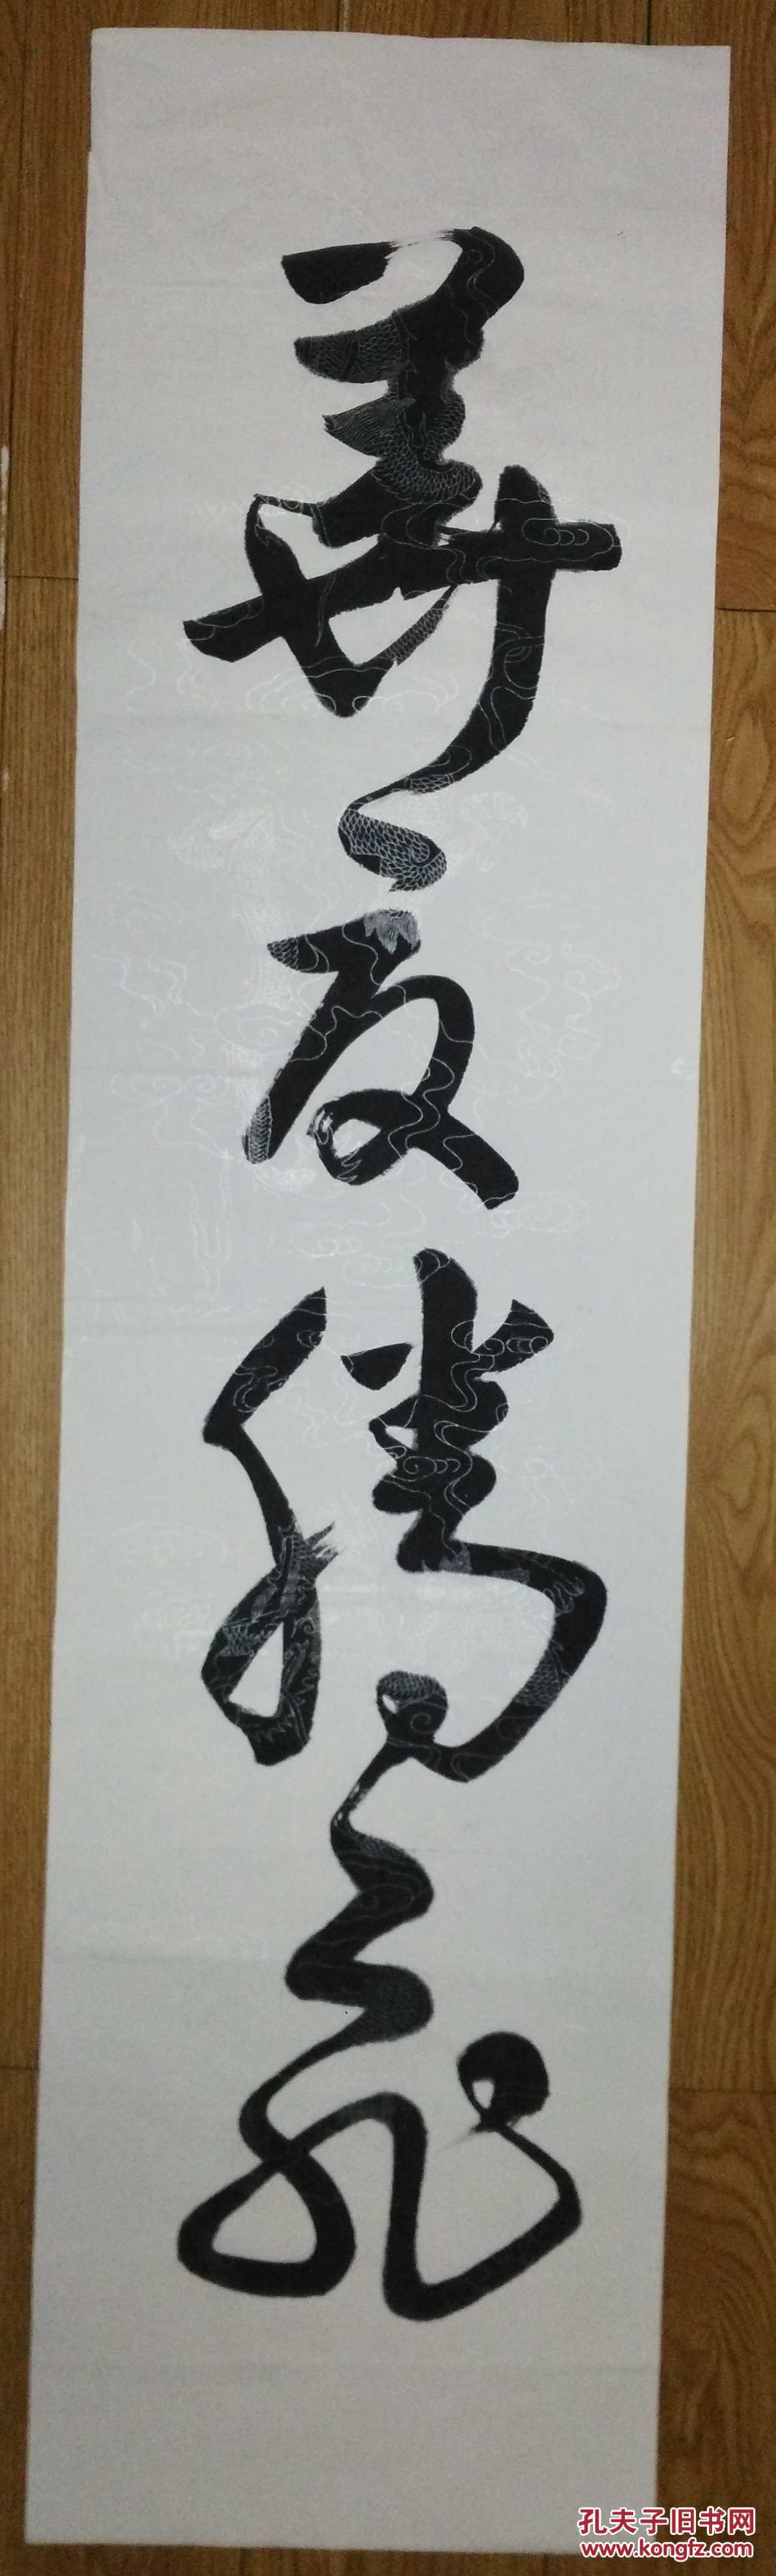 華夏騰飛
孔夫子旧书网
www.kongfz.com